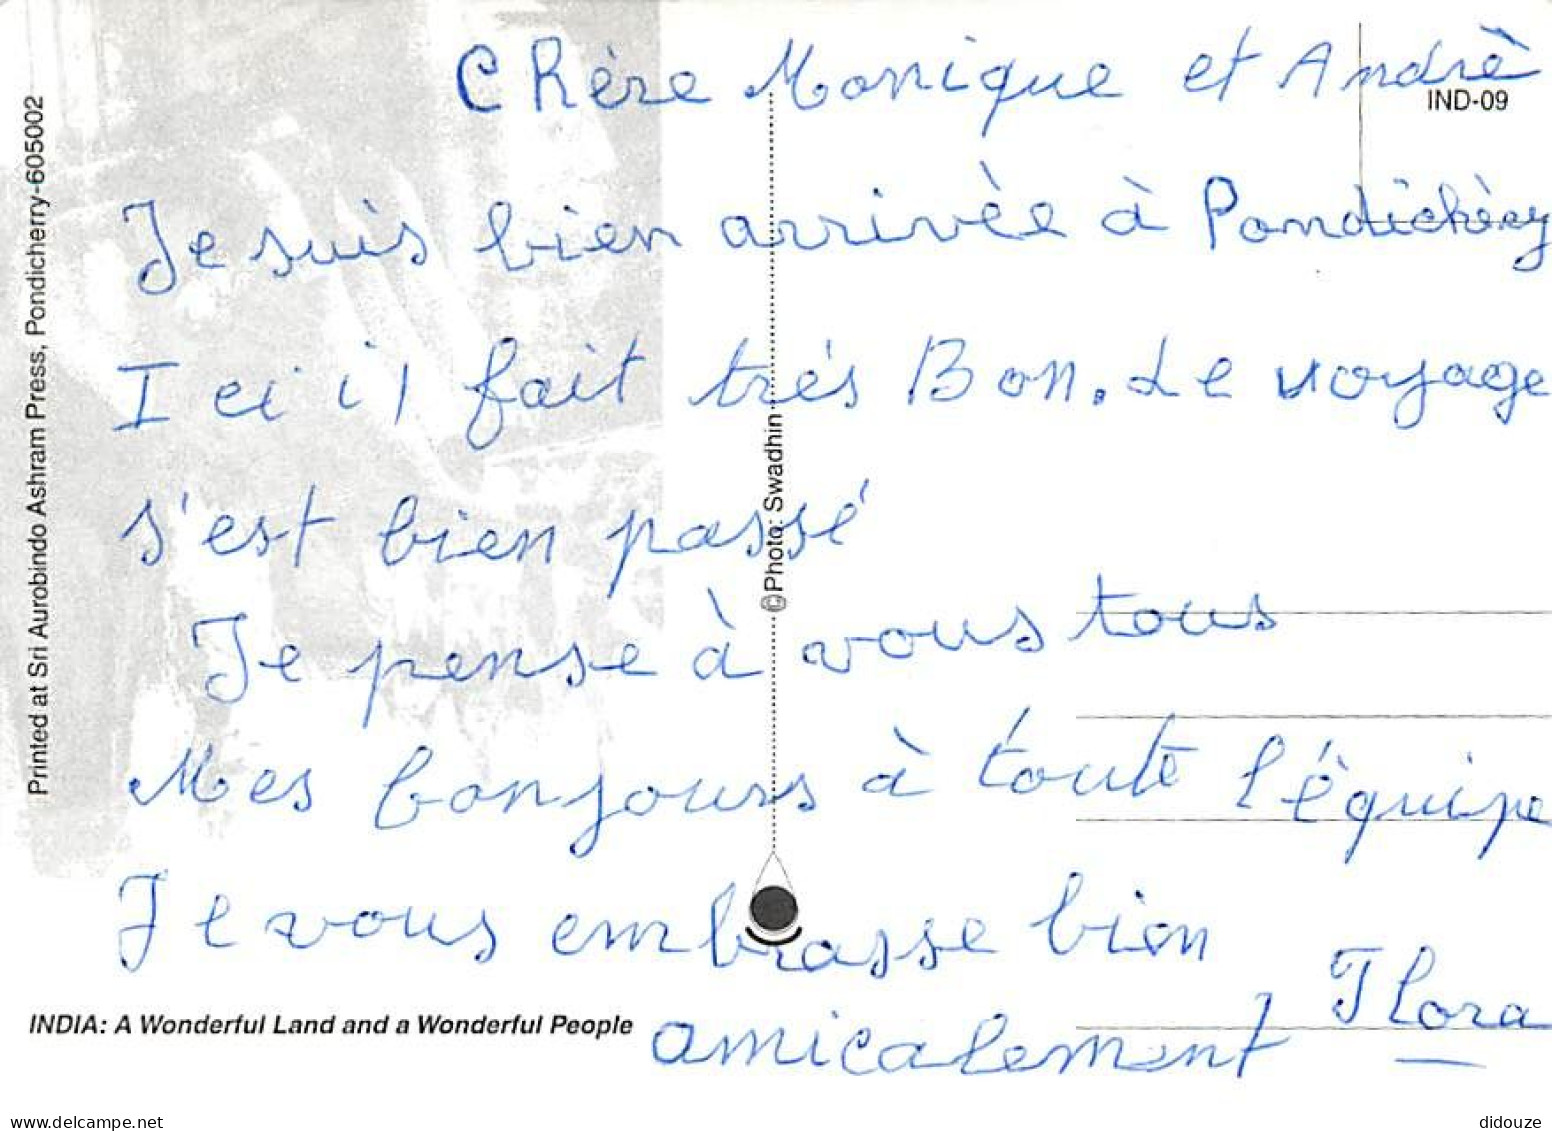 Chère Monique et Andrè
IND-09
Je suis bien arrivèe à Pondichèry
Ici il fait trés Bon. Le voyage
s'est bien passé
Je pense à vous tous
Mes bonjours à toute l'équipe
Je vous embrasse bien
amicalement Flora
INDIA: A Wonderful Land and a Wonderful People
Printed at Sri Aurobindo Ashram Press, Pondicherry-605002
©Photo: Swadhin
www.delcampe.net
didouze